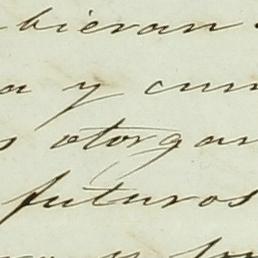 bieran
a y cum
s otorgan
futuros
y